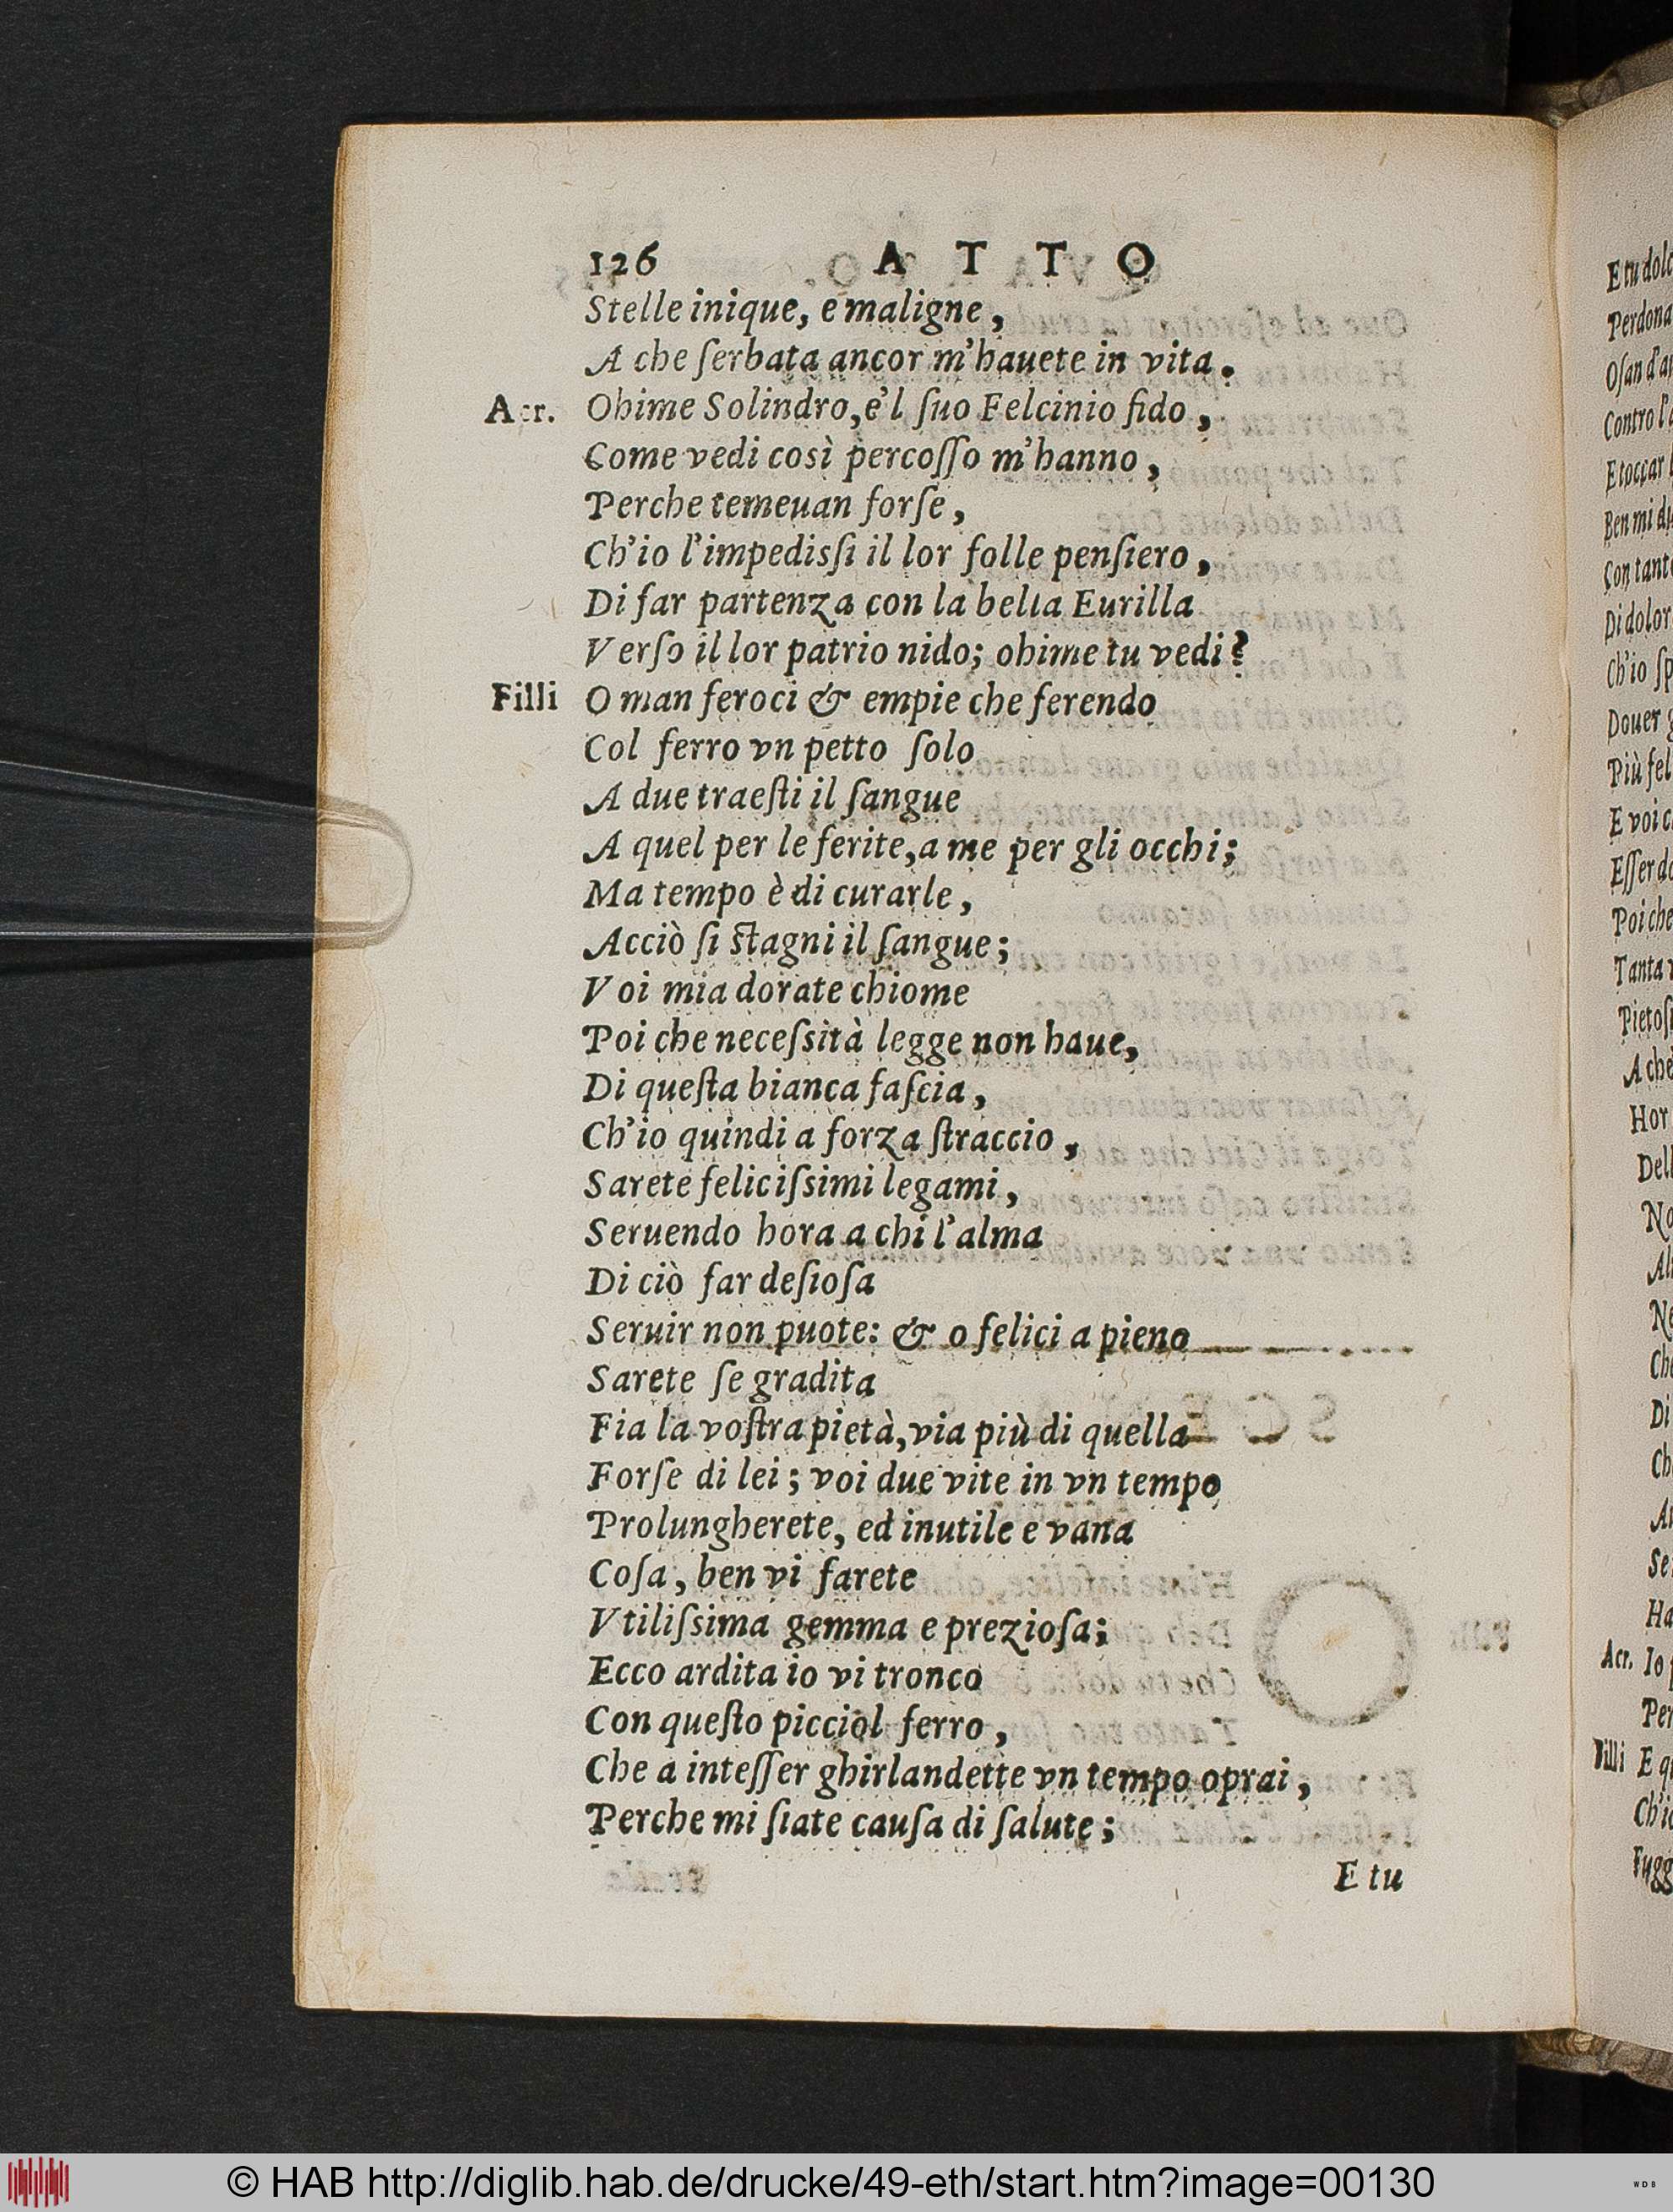 126 ATTO
Stelle inique, e maligne,
A che ſerbata ancor m'hauete in vita.
Acr. Ohime Solindro, e'l ſuo Felcinio fido,
Come vedi così percoſſo m'hanno,
Perche temeuan forſe,
Ch'io l'impediſſi il lor folle penſiero,
Di far partenza con la bella Eurilla
Verſo il lor patrio nido; ohime tu vedi?
Filli O man feroci & empie che ferendo
Col ferro vn petto ſolo
A due traeſti il ſangue
A quel per le ferite, a me per gli occhi;
Ma tempo è di curarle,
Acciò ſi ſtagni il ſangue;
Voi mia dorate chiome
Poi che neceſsità legge non haue,
Di queſta bianca faſcia,
Ch'io quindi a forza ſtraccio,
Sarete feliciſsimi legami,
Seruendo hora a chi l'alma
Di ciò far deſioſa
Seruir non puote: & o felici a pieno
Sarete ſe gradita
Fia la voſtra pietà, via più di quella
Forſe di lei; voi due vite in vn tempo
Prolungherete, ed inutile e vana
Coſa, ben vi farete
Vtiliſsima gemma e prezioſa;
Ecco ardita io vi tronco
Con queſto picciol ferro,
Che a inteſſer ghirlandette vn tempo oprai,
Perche mi ſiate cauſa di ſalute;
E tu
E tu
Perdona
Contro
Ben mi
Di dolor
Ch'io
Douer
Più
E voi
Poi che
Tanta
A che
Hor
Di
Acr. Io
Filli E
© HAB http://diglib.hab.de/drucke/49-eth/start.htm?image=00130
WDB